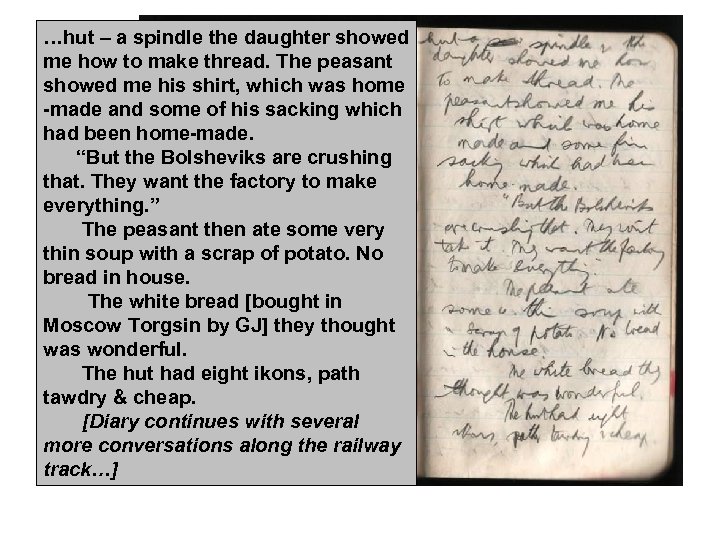 …hut – a spindle the daughter showed
me how to make thread. The peasant
showed me his shirt, which was home
-made and some of his sacking which
had been home-made.
“But the Bolsheviks are crushing
that. They want the factory to make
everything. ”
The peasant then ate some very
thin soup with a scrap of potato. No
bread in house.
The white bread [bought in
Moscow Torgsin by GJ] they thought
was wonderful.
The hut had eight ikons, path
tawdry & cheap.
[Diary continues with several
more conversations along the railway
track…]
hut a spindle & the
daughter showed me how
to make thread. The
peasant showed me his
shirt which was home
made and some fin
sacking which had been
home-made.
"But the Bolsheviks
are crushing that. They won't
take it. They want the factory
to make everything"
The peasant ate
some v. thin soup with
a scrap of potato. No bread
in the house.
The white bread they
thought was wonderful.
The hut had eight
ikons, path tawdry & cheap.